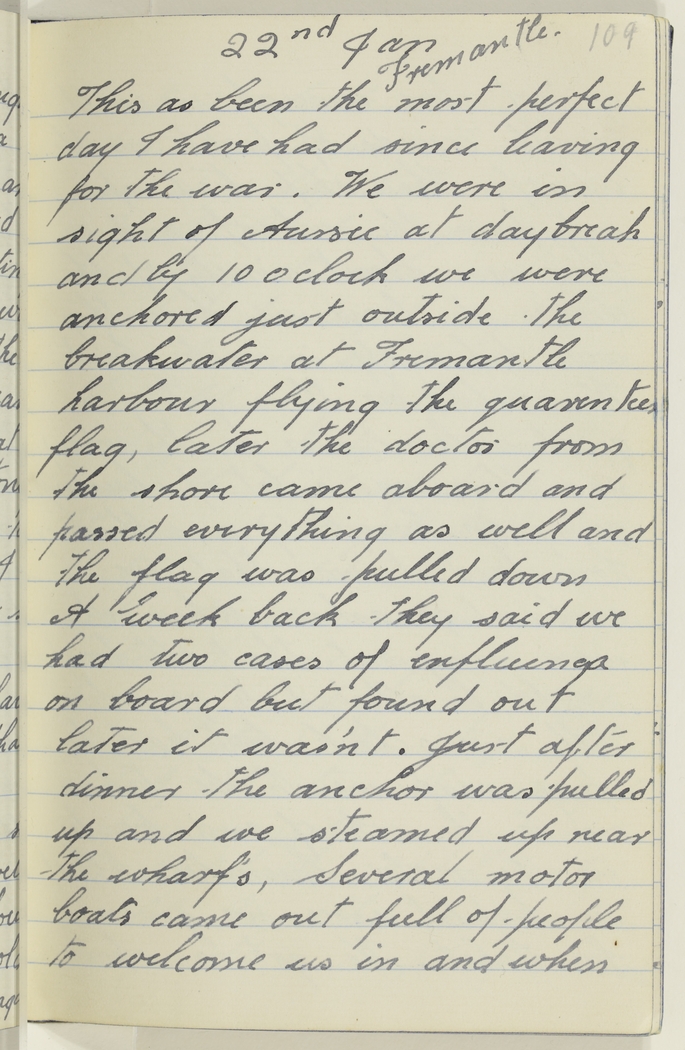 109
22nd Jan
Fremantle.
This as been the most perfect
day I have had since leaving
for the war. We were in
sight of Aussie at daybreak
and by 10 oclock we were
anchored just outside the
breakwater at Fremantle
harbour flying the
flag, later the doctor from
the shore came aboard and
passed everything as well and
the flag was pulled down
A week back they said we
had two cases of enfluenza
on board but found out
later it was'nt. Just after
dinner the anchor was pulled
up and we steamed up near
the wharf's, Several motor
boats came out full of people
to welcome us in and when